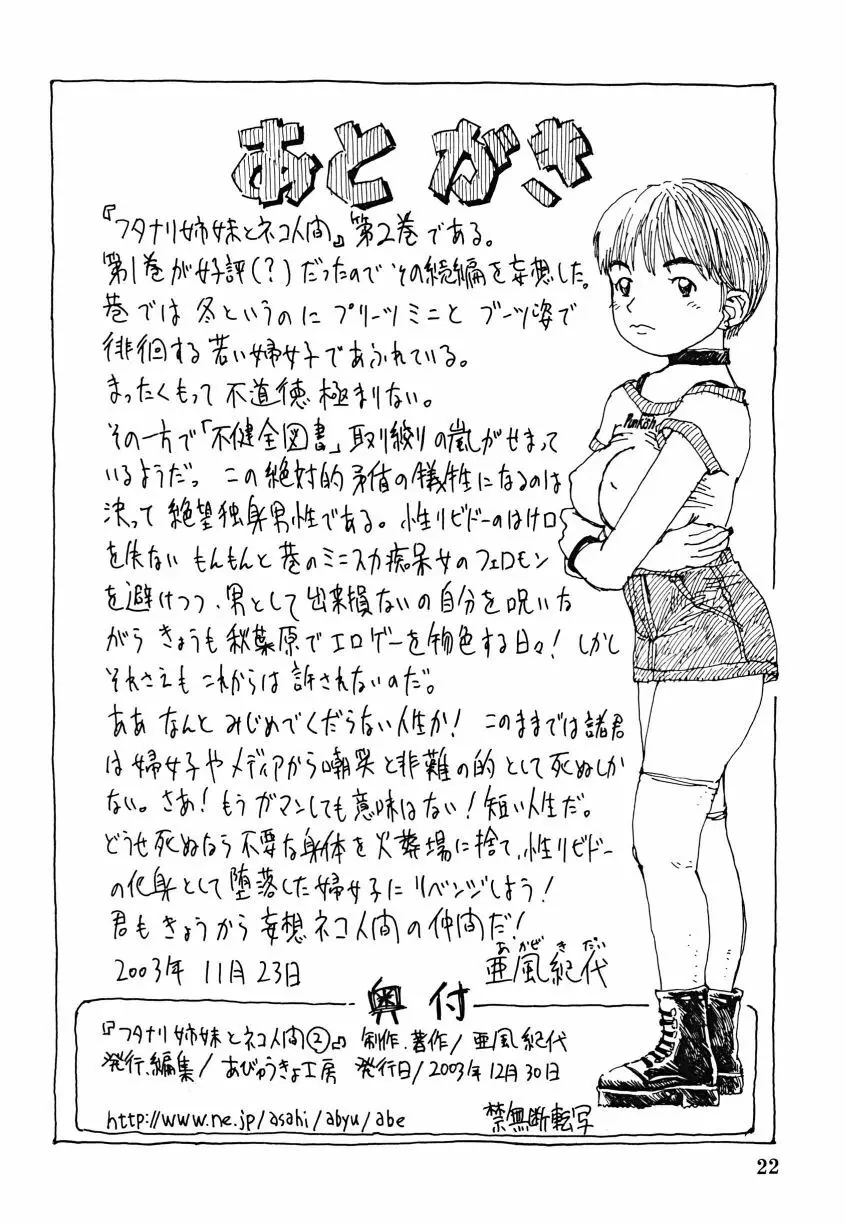 あとがき
『フタナリ姉妹とネコ人間』第2巻である。
第1巻が好評(?)だったのでその続編を妄想した。
巷では冬というのにプリーツミニとブーツ姿で
徘徊する若い婦女子であふれている。
まったくもって不道徳極まりない。
その一方で「不健全図書」取り締りの嵐がせまって
いるようだ。この絶対的矛盾の犠牲になるのは
決って絶望独身男性である。性リビドーのはけ口
を失ない もんもんと巷のミニスカ痴呆女のフェロモン
を避けつつ、男として出来損ないの自分を呪いな
がら きょうも秋葉原でエロゲーを物色する日々! しかし
それさえも これからは許されないのだ。
ああ なんと みじめでくだらない人生か! このままでは諸君
は婦女子やメディアから嘲笑と非難の的として死ぬしか
ない。さあ! もうガマンしても意味はない! 短い人生だ。
どうせ死ぬなら不要な身体を火葬場に捨て、性リビドー
の化身として堕落した婦女子にリベンジしよう!
君もきょうから妄想ネコ人間の仲間だ!
2003年 11月23日
あかぜきだい
亜風紀代
Punkish
奥付
『フタナリ姉妹とネコ人間②』 制作、著作/亜風紀代
発行、編集/あびゅうきょ工房 発行日/2003年12月30日
http://www.ne.jp/asahi/abyu/abe 禁無断転写
22